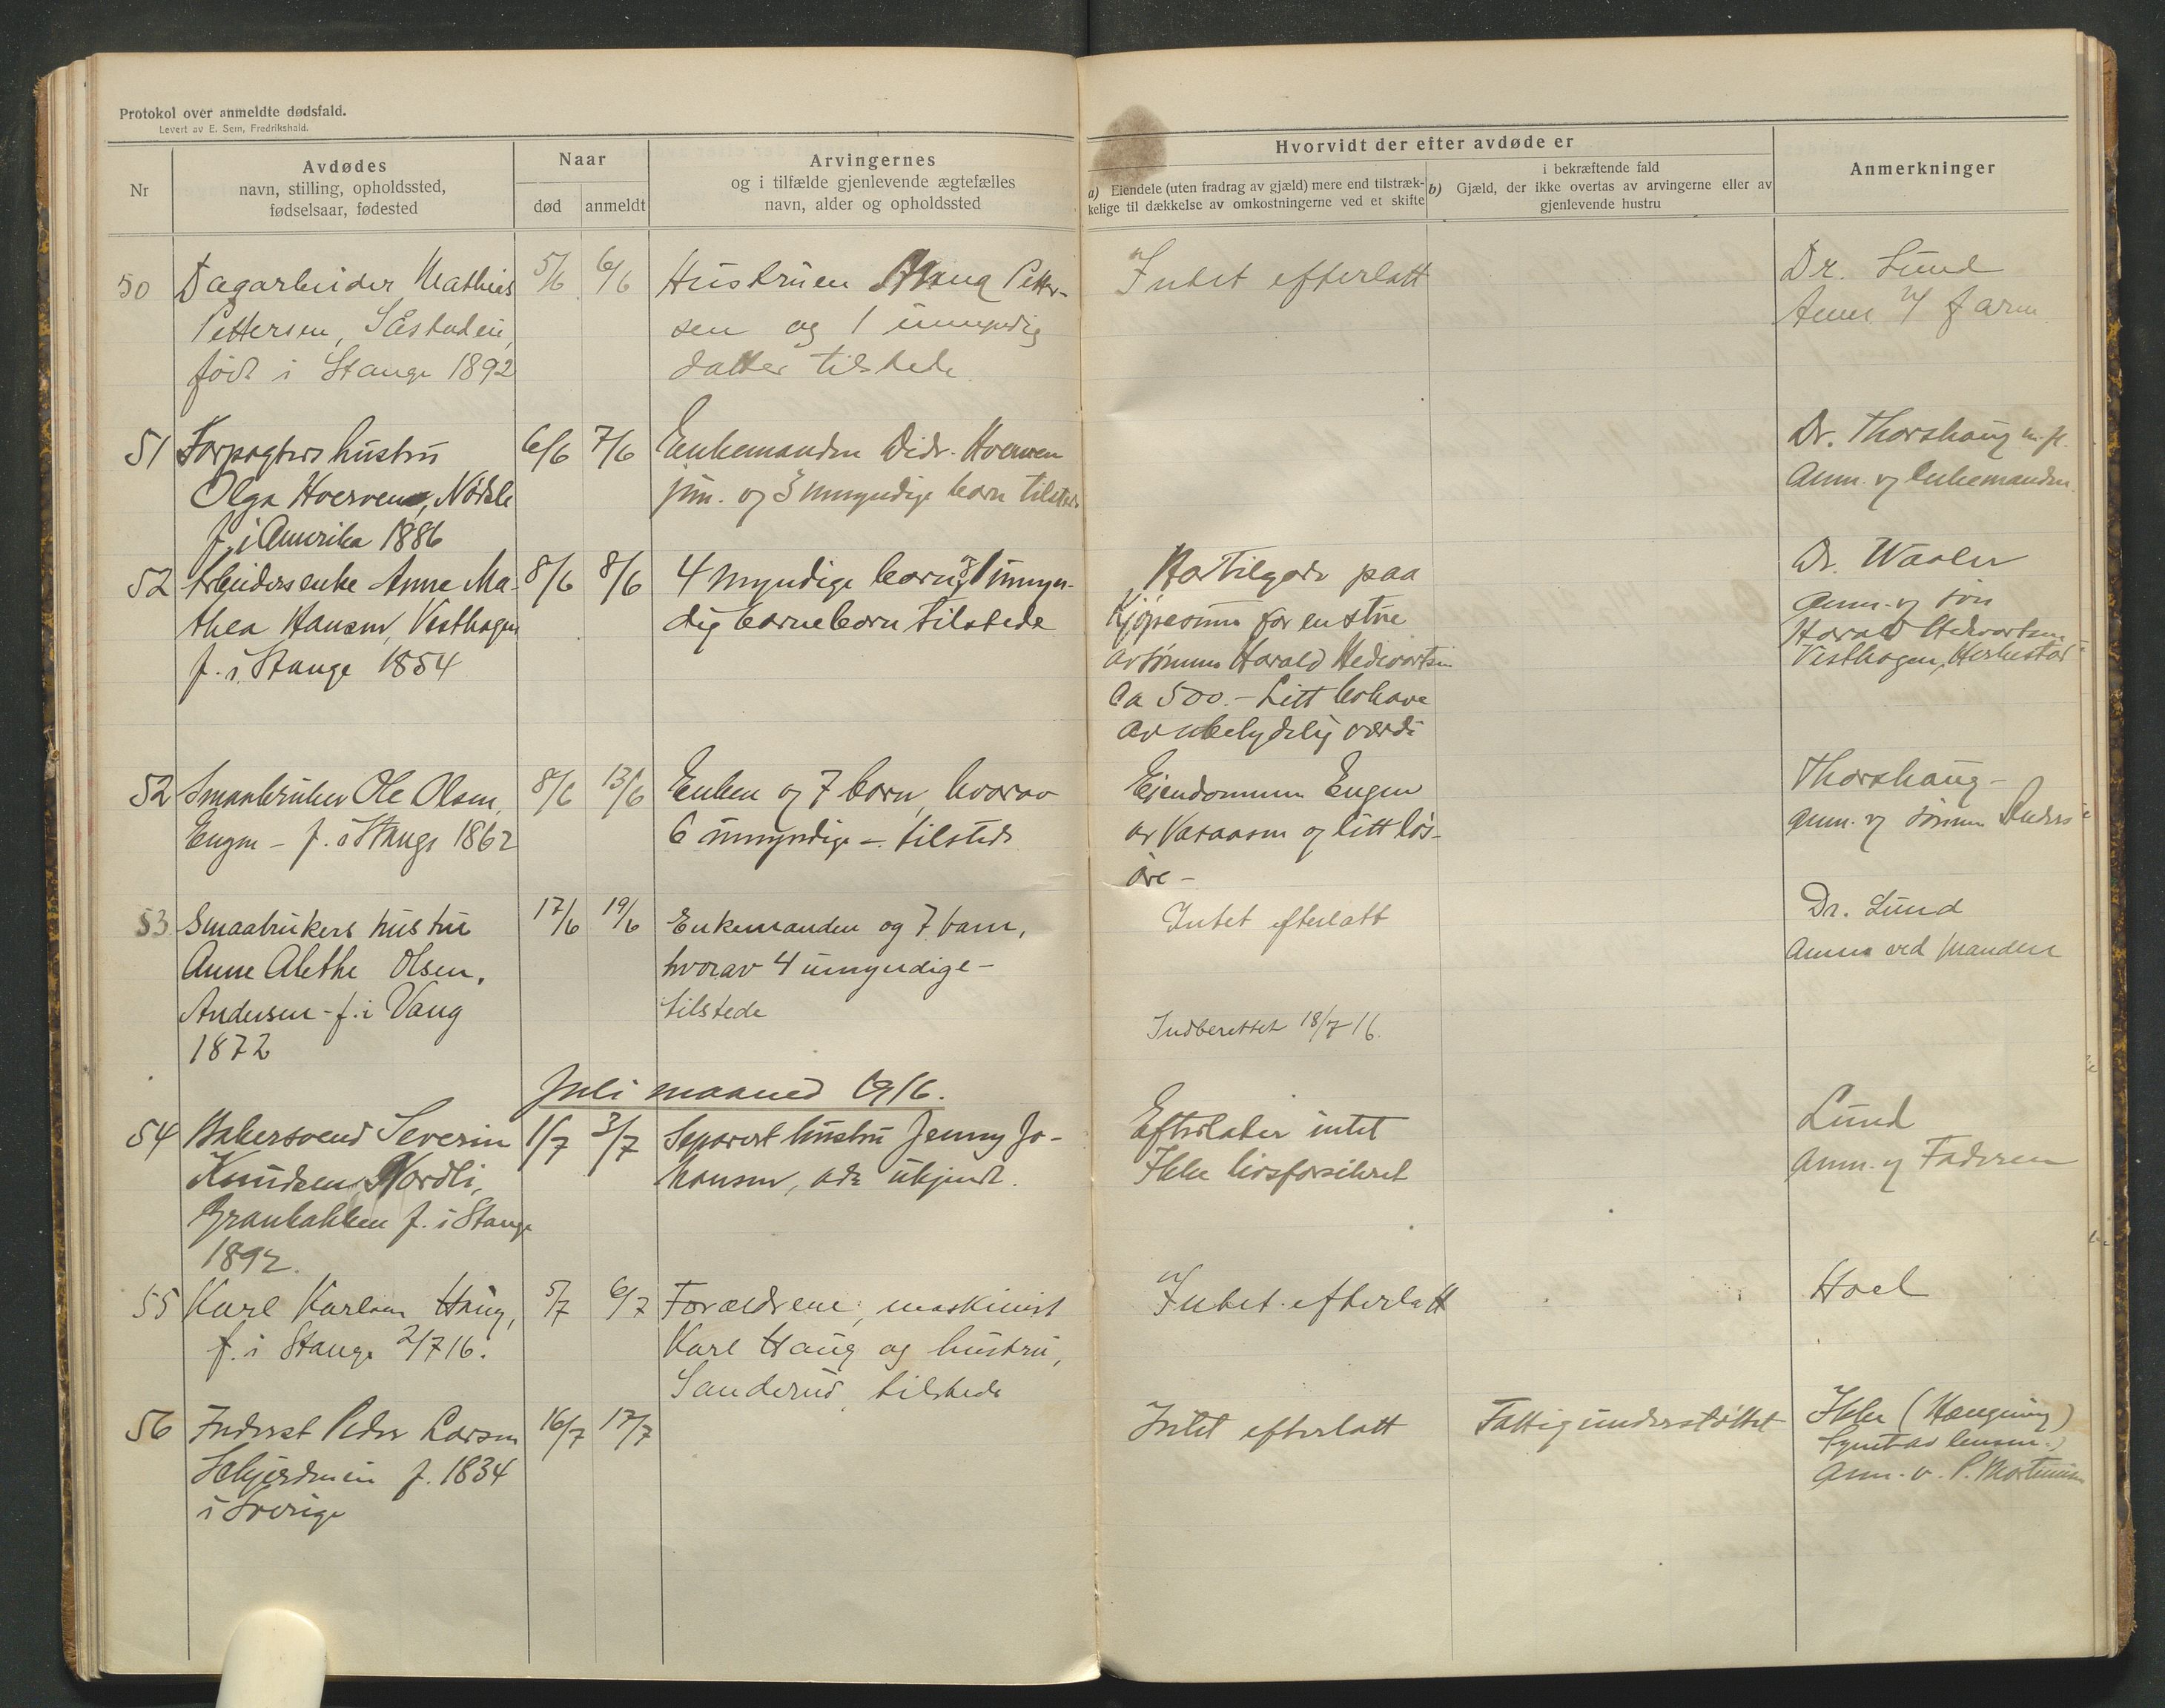 Protokol over anmeldte dødsfald.
Levert av E. Sem, Fredrikshald.
Nr
Avdødes
navn, stilling, opholdssted,
fødselsaar, fødested
Naar
død
anmeldt
Arvingernes
og i tilfælde gjenlevende ægtefælles
navn, alder og opholdssted
Hvorvidt der efter avdøde er
a) Eiendele (uten fradrag av gjæld) mere end tilstræk-
kelige til dækkelse av omkostningerne ved et skifte
i bekræftende fald
b) Gjæld, der ikke overtas av arvingerne eller av
gjenlevende hustru
Anmerkninger
50
Dagarbeider Mathias
Pettersen,
født i Stange 1892
5/6
6/6
Hustruen Petter-
sen og 1 umyndig
datter tilstede
Intet efterlatt
Dr. Lund
Anm.
51
Forpagters hustru
Olga Hoerven,
f. i Amerika 1886
6/6
7/6
Enkemanden Didr. Hoerven
jun. og 3 umyndige barn tilstede
Dr. Thorshaug
Anm. v/ Enkemanden
52
Arbeidersenke Anne Ma-
thea Hansen, Vesthagen
f. i Stange 1854
8/6
8/6
4 myndige barn og 1 umyn-
dig barnebarn tilstede
Har tilgode paa
Kjøpesum for en stue
av sønnen Harald Hedevartsen
Ca 500.- Litt bohave
av ubetydelig værdi
Dr. Waaler
Anm. v/ søn
Harald Hedvartsen
Vesthagen,
52
Smaabruker Ole Olsen
Engen - f. i Stange 1862
8/6
13/6
Enken og 7 barn, hvorav
6 umyndige - tilstede
Eiendommen Engen
av Vasaasen og litt løs-
øre -
Thorshaug -
Anm. v/ sønnen Anders
53
Smaabrukers hustru
Anne Alethe Olsen,
Andersen - f. i Vang
1872
17/6
19/6
Enkemanden og 7 barn,
hvorav 4 umyndige -
tilstede
Intet efterlatt
Indberettet 18/7 16.
Dr. Lund
Anm. ved manden
Juli maaned 1916.
54
Bakersvend Severin
Knudsen Nordli,
Granbakken f. i Stange
1892.
1/7
3/7
Separert hustru Jenny Jo-
hansen, adr. ukjendt.
Efterlater intet
Ikke livsforsikret
Lund
Anm. v/ Faderen
55
Karl Karlsen Haug,
f. i Stange 2/7 16.
5/7
6/7
Forældrene, maskinist
Karl Haug og hustru,
Sanderud, tilstede
Intet efterlatt
Hoel
56
Inderst Peder Larsen
f. 1834
i Sverige
16/7
17/7
Intet efterlatt
Fattigunderstøttet
Ikke (Hængning)
Synet av lensm.)
Anm. v. P. Mortensen